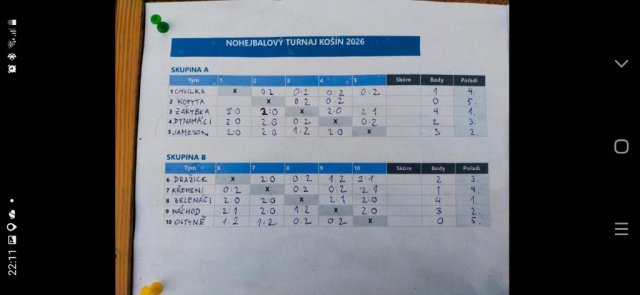 NOHEJBALOVÝ TURNAJ KOŠÍN 2026
SKUPINA A
Tým 1 2 3 4 5 Skóre Body Pořadí
1 CHVILKA x 0:2 0:2 0:2 0:2 1 4.
2 KOPYTA x 0:2 0:2 0 5.
3 ŽABYBKA 2:0 2:0 x 2:0 2:1 4 1.
4 DYNAMÁCI 2:0 2:0 0:2 x 0:2 2 3.
5 JAMESON 2:0 2:0 1:2 2:0 x 3 2.
SKUPINA B
Tým 6 7 8 9 10 Skóre Body Pořadí
6 DRAŽICE x 2:0 0:2 1:2 2:1 2 3.
7 KŘEMENI 0:2 x 0:2 0:2 2:1 1 4.
8 SKLENÁCI 2:0 2:0 x 2:1 2:0 4 1.
9 NÁCHOD 2:1 2:0 1:2 x 2:0 3 2.
10 1:2 1:2 0:2 0:2 x 0 5.
22:11